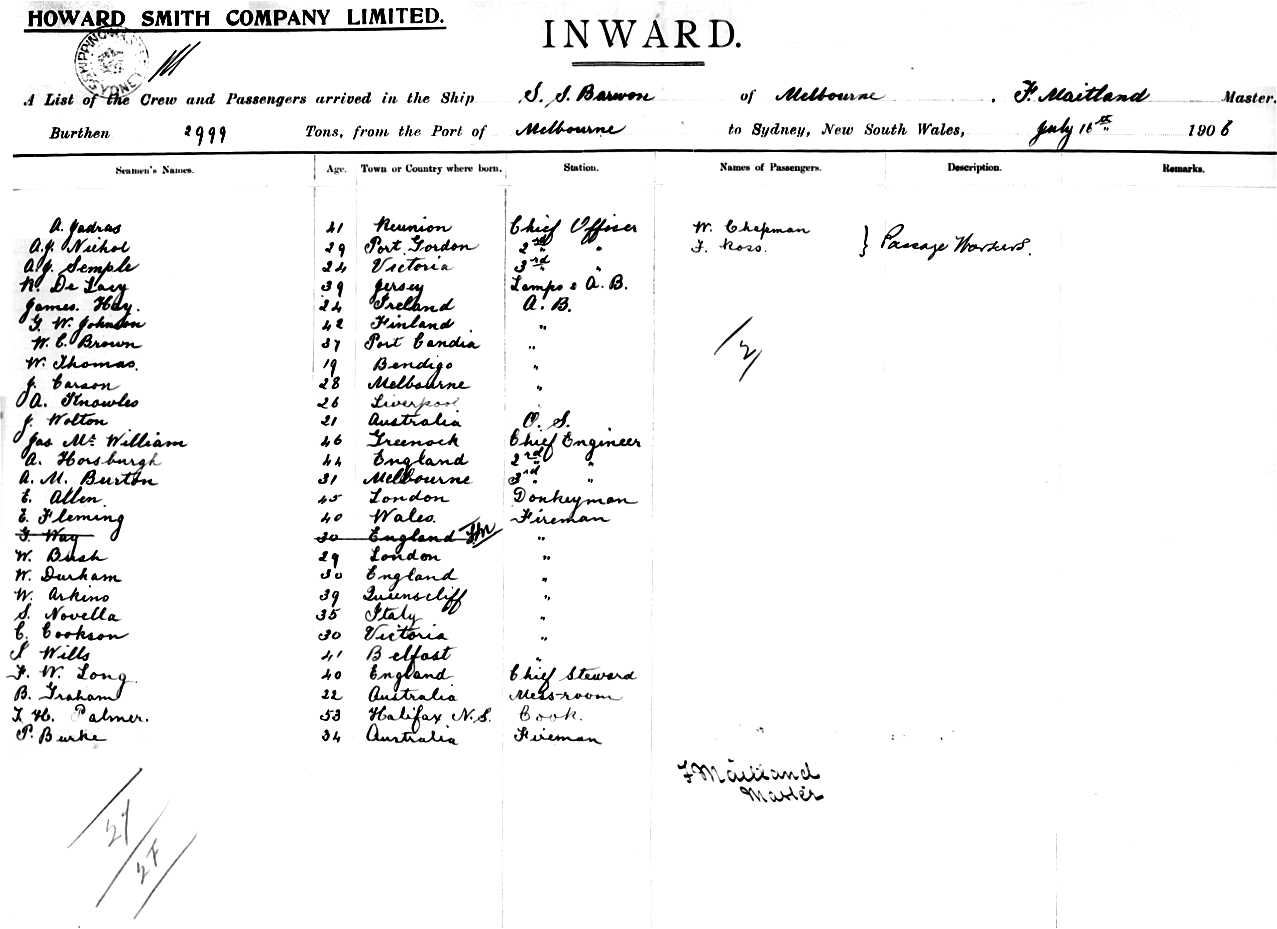 HOWARD SMITH COMPANY LIMITED.
INWARD.
A List of the Crew and Passengers arrived in the Ship S. S. Barwon of Melbourne , F. Maitland Master.
Burthen 2999 Tons, from the Port of Melbourne to Sydney, New South Wales, July 16th 1906
Seamen's Names. Age. Town or Country where born. Station. Names of Passengers. Description. Remarks.
A. Jadras 41 Reunion Chief Officer W. Chapman
A.J. Nichol 29 Port Gordon 2nd " F. Ross. } Passage Workers.
A.J. Semple 24 Victoria 3rd "
N. De Lacy 39 Jersey Lamps & A.B.
James. Hay. 24 Ireland A.B.
G. W. Johnson 42 Finland "
W. C. Brown 37 Port Candia "
W. Thomas. 19 Bendigo "
J. Carson 28 Melbourne "
A. Knowles 26 Liverpool "
J. Wolton 21 Australia O. S.
Jas Mc William 46 Greenock Chief Engineer
A. Horsburgh 44 England 2nd "
A. M. Burton 31 Melbourne 3rd "
E. Allen 45 London Donkeyman
E. Fleming 40 Wales. Fireman
G. Way 30 England FM "
W. Bush 29 London "
W. Durham 30 England "
W. Arkins 39 Queenscliff "
S. Novella 35 Italy "
C. Cookson 30 Victoria "
S Wills 41 Belfast "
F. W. Long 40 England Chief Steward
B. Graham 22 Australia Mess-room
F. H. Palmer. 53 Halifax N.S. Cook.
P. Burke 34 Australia Fireman
2
F Maitland
Master
27
27